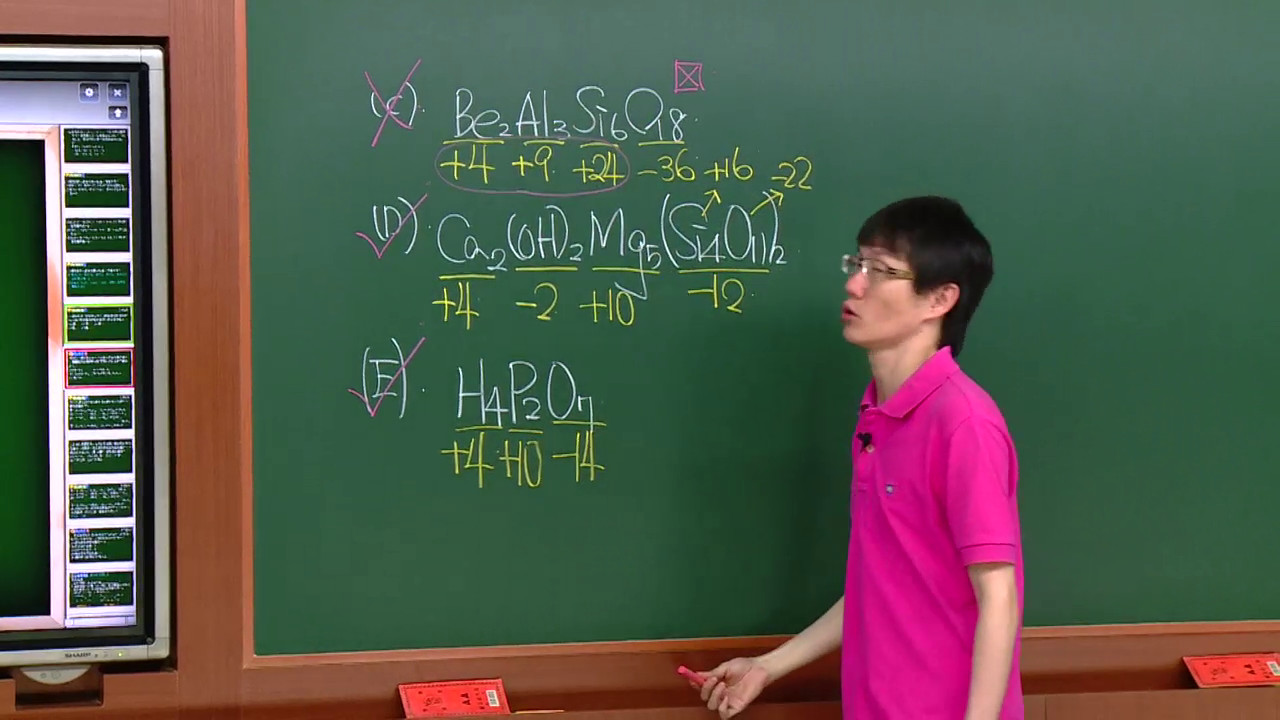 (C). Be₂Al₃Si₆O₁₈
+4 +9 +24 -36 +16 -22
(D). Ca₂(OH)₂Mg₅(Si₄O₁₁)₂
+4 -2 +10 -12
(E). H₄P₂O₇
+4 +10 -14
SHARP